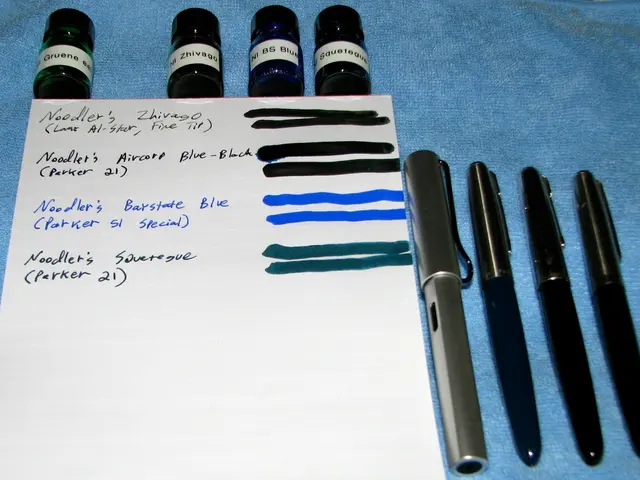 Gruene
Nl Zhivago
Nl.BS Blue
Squeteque
Noodler's Zhivago
(Lamy Al-Star, Fine Tip)
Noodler's Aircorp Blue-Black
(Parker 21)
Noodler's Baystate Blue
(Parker 51 Special)
Noodler's Squeteque
(Parker 21)